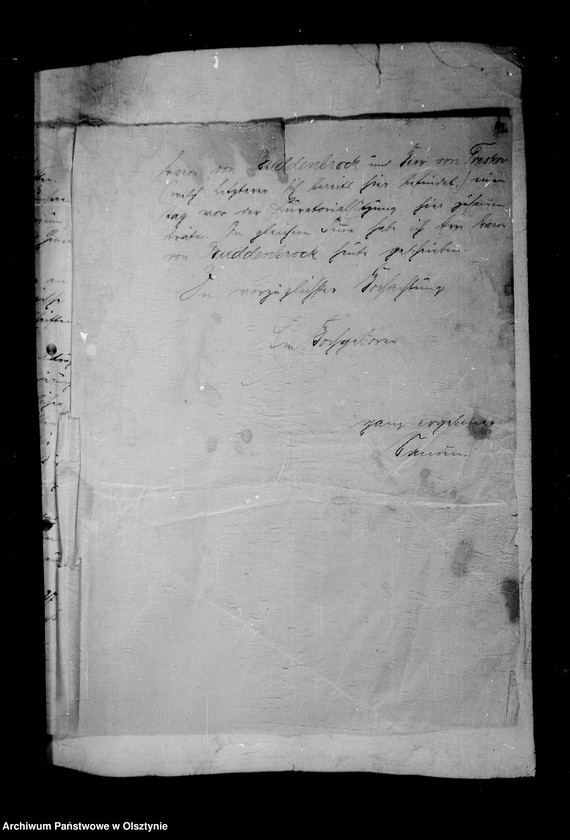 Baron von Buddenbrock und Herr von Treskow
(welch Letzterer sich bereits hier befindet,) einen
Tag vor der Curatorialsitzung hier zusammen
träte. In gleichem Sinne habe ich dem Baron
von Buddenbrock heute geschrieben.
In vorzüglichster Hochachtung
Ew. Hochgeboren
ganz ergebener
Archiwum Państwowe w Olsztynie